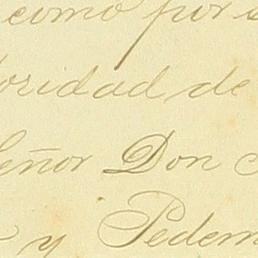 como por
oridad de
Señor Don
y Pedern